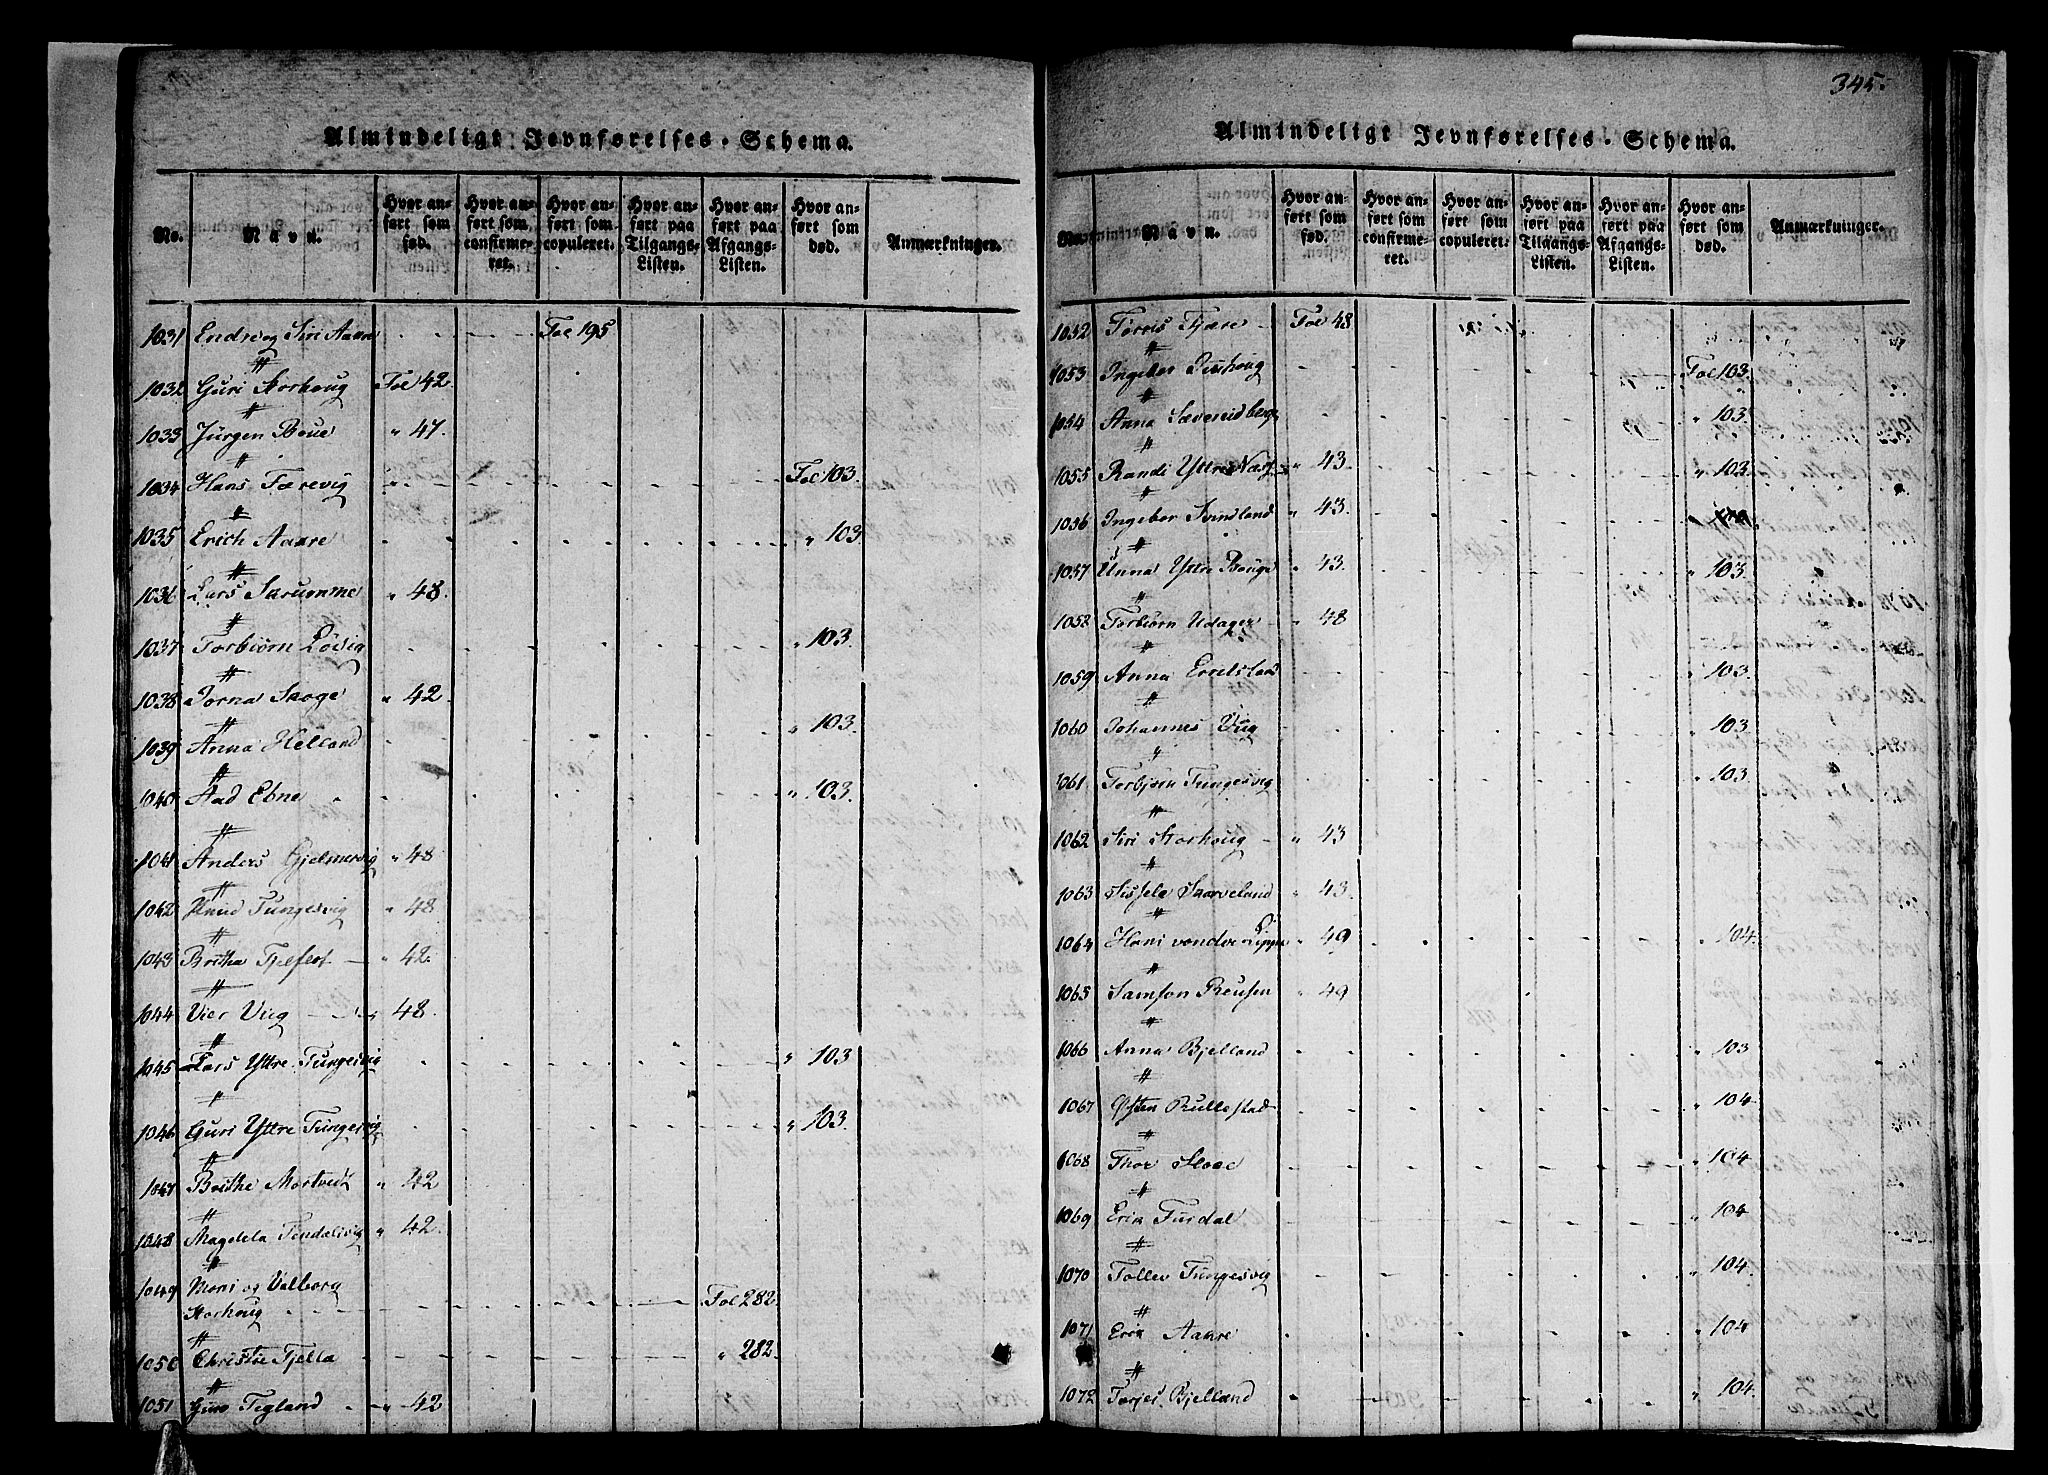 Almindeligt Jevnførelses-Schema.
No. Navn. Hvor anført som fød. Hvor anført som confirmeret. Hvor anført som copuleret. Hvor anført paa Tilgangs-Listen. Hvor anført paa Afgangs-Listen. Hvor anført som død. Anmærkninger.
1031 Endre og Siri Aakre Fol 195
1032 Guri Storhoug Fol 42.
1033 Jürgen Boue " 47.
1034 Hans Færevig Fol 103.
1035 Erich Aakre " 103.
1036 Lars Skrumme " 48.
1037 Torbiørn Løvig " 103.
1038 Jorna Skoge " 42.
1039 Anna Helland " 103.
1040 Aad Ebne " 103.
1041 Anders Gjelmervig " 48
1042 Knud Tungesvig " 48.
1043 Britha Fjelfert " 42.
1044 Vier Viig " 48.
1045 Lars Yttre Tungesvig " 103
1046 Guri Yttre Tungesvig " 103.
1047 Brithe Mortvedt " 42
1048 Magdela Tindelsvig " 42.
1049 Moni og Valborg
Storhoug Fol 282.
1050 Christie Fjella " 282.
1051 Guro Tegland " 42
345.
Almindeligt Jevnførelses-Schema.
No. Navn. Hvor anført som fød. Hvor anført som confirmeret. Hvor anført som copuleret. Hvor anført paa Tilgangs-Listen. Hvor anført paa Afgangs-Listen. Hvor anført som død. Anmærkninger.
1052 Tørris Fjære Fol 48.
1053 Ingebor Fol 103.
1054 Anna " 103.
1055 Randi Yttre " 43. " 103.
1056 Ingebor Svindland " 43.
1057 Anna Yttre Bouge " 43. " 103.
1058 Torbiørn Udager " 48
1059 Anna " 103.
1060 Johannes Viig " 103.
1061 Torbjørn Tungesvig " 103.
1062 Siri Storhoug " 43
1063 Sissela Skarveland " 43.
1064 Hans vonder Lippe " 49 " 104.
1065 Samson Reusen " 49
1066 Anna Bjelland " 103
1067 Østen Rullestad " 104.
1068 Thor " 104.
1069 Erik Furdal " 104
1070 Tollev Tungesvig " 104.
1071 Erik Aakre " 104
1072 Torjer Bjelland " 104.